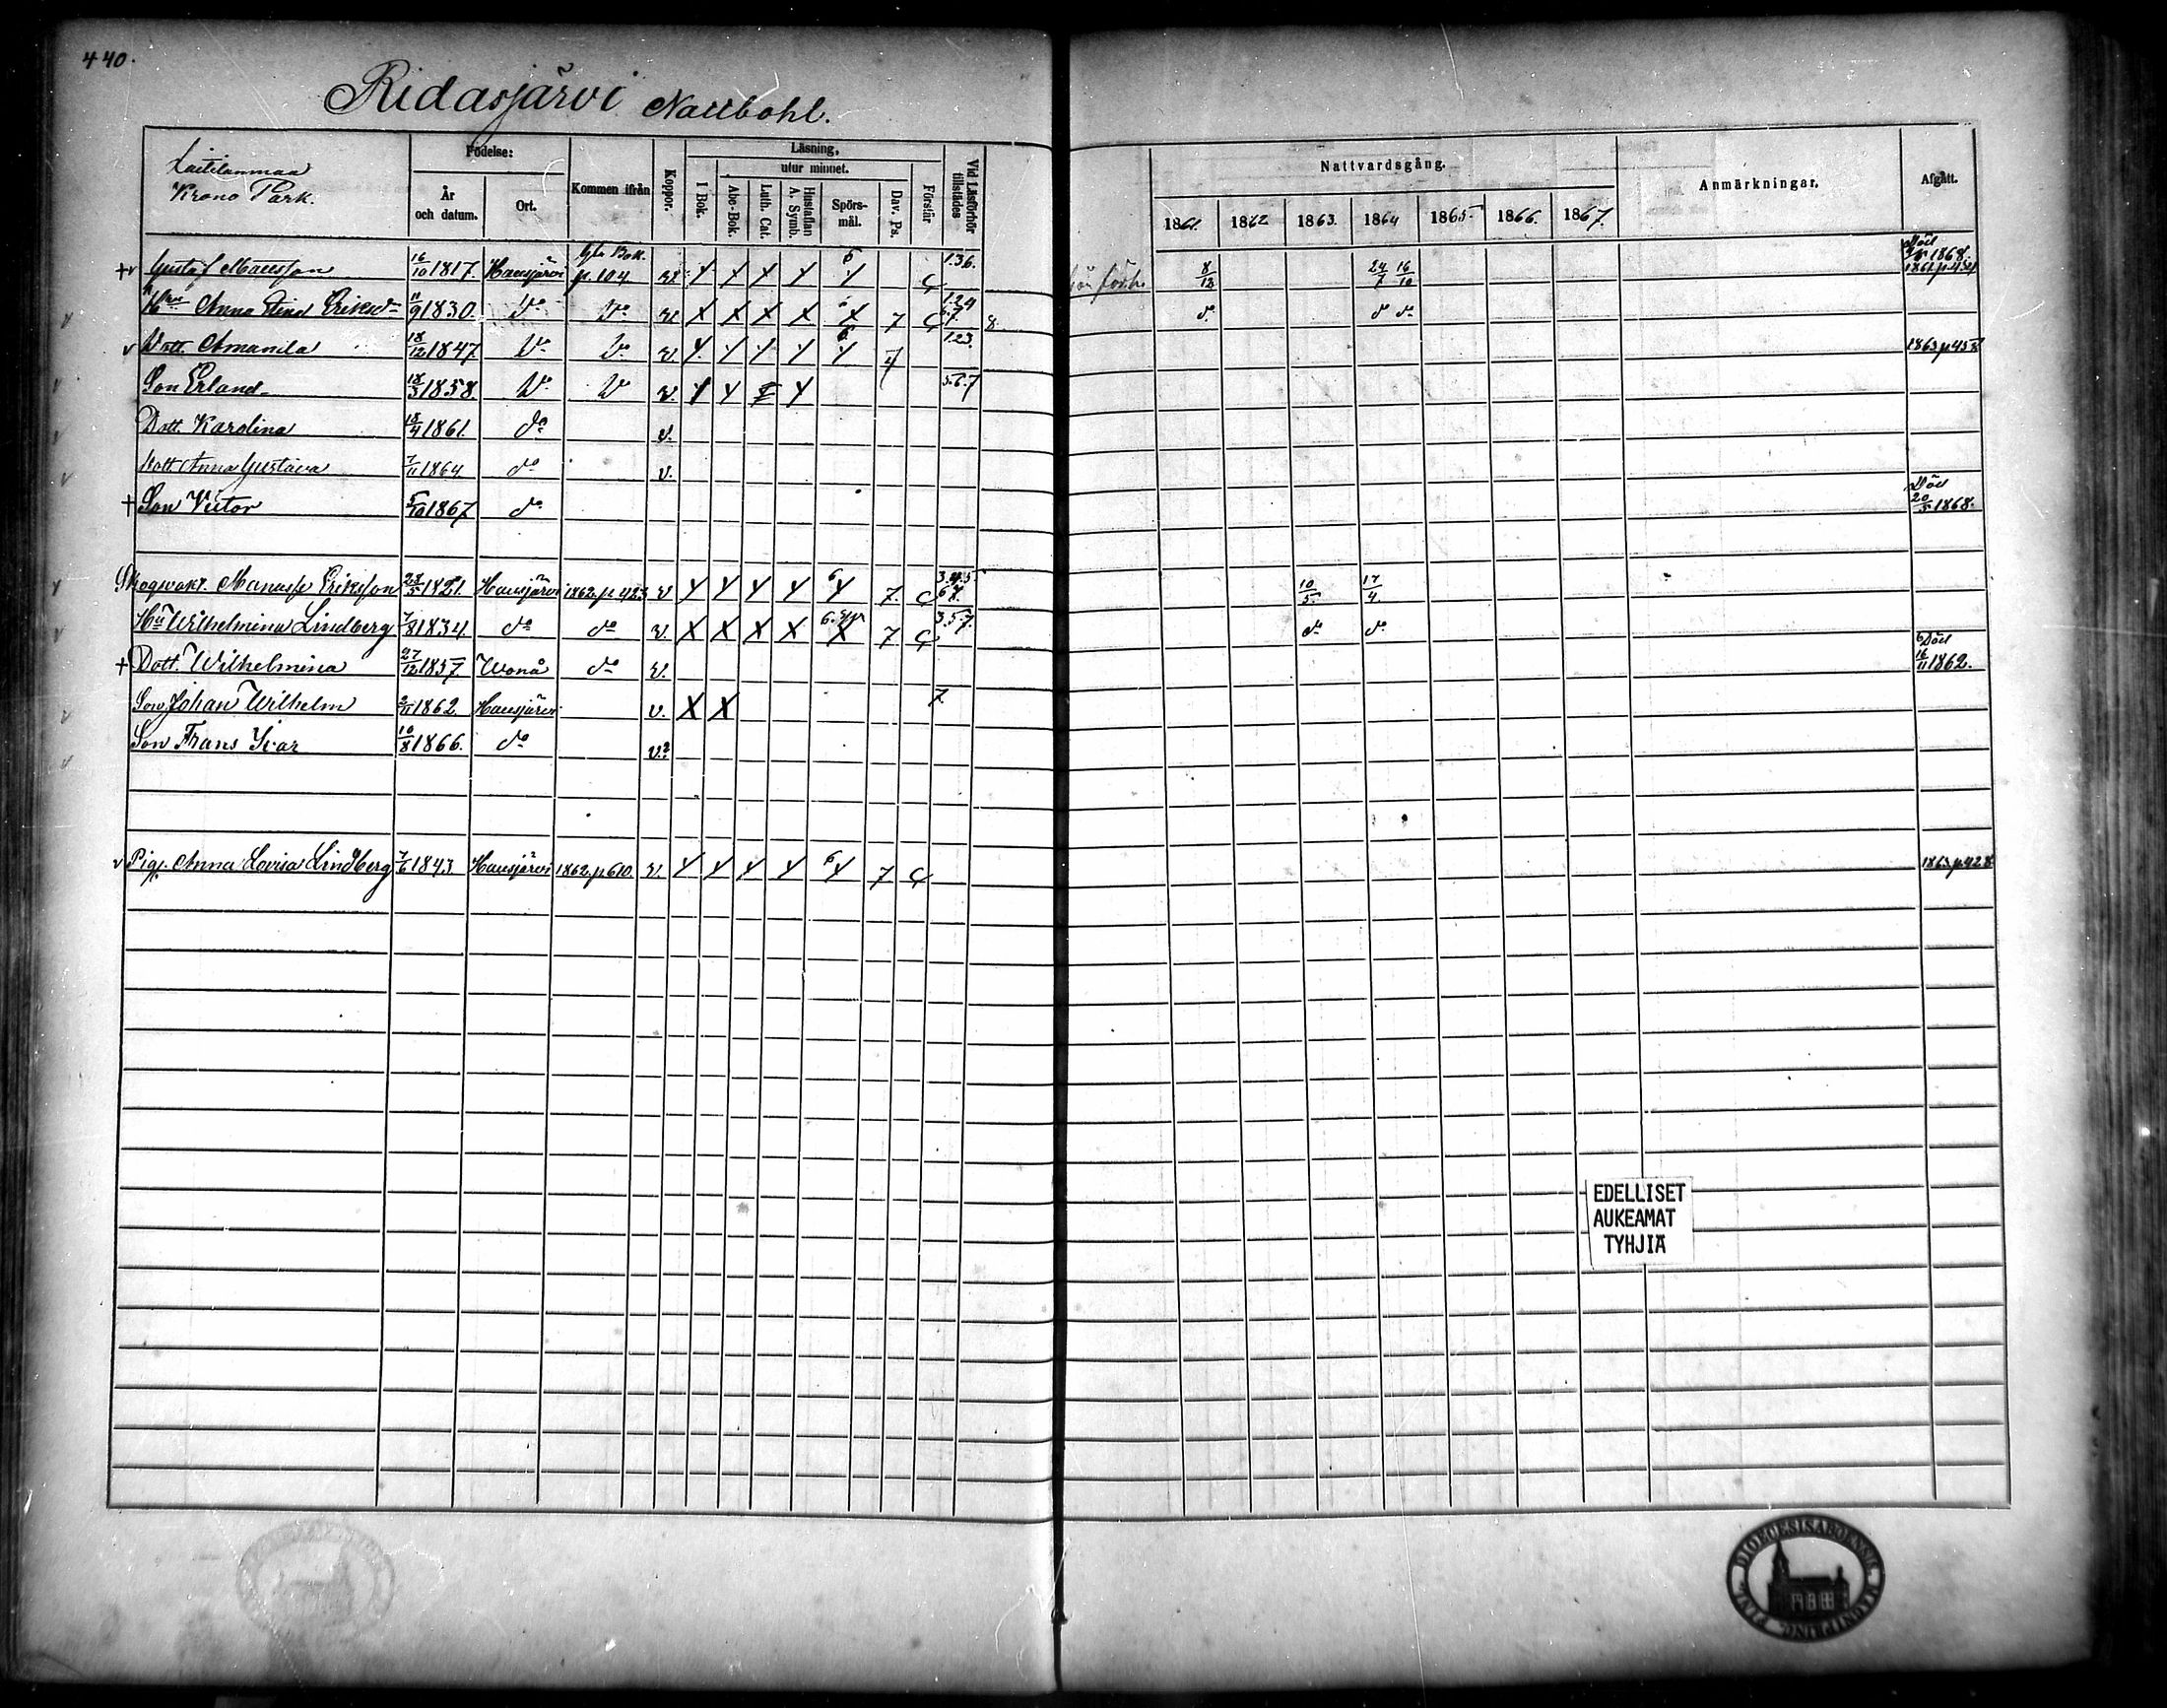 440.
Ridasjärvi Nattbohl.
Laitilanmaa
Krono Park.
Födelse:
År och datum.
Ort.
Kommen ifrån
Koppor.
Läsning,
utur minnet.
I Bok.
Abc-Bok.
Luth. Cat.
Hustaflan A. Symb.
Spörsmål.
Dav. Ps.
Förstår
Vid Läsförhör tillstädes
Nattvardsgång.
1861. 1862 1863. 1864 1865. 1866. 1867.
Anmärkningar.
Afgått.
+v Gustaf 16/10 1817. Hausjärvi Bok. p. 104 v 6 1.3.6. 8/12 24/7 16/10 Död 1868.
Anna Stina Eriksdr 11/9 1830. do do v 7 8. do do do
v Dott. Amanda 18/12 1847. do do v. 6 1.2.3. 1863 p 458
Son Erland 18/3 1858. do do v. 5.6.7
Dott. Karolina 18/4 1861. do v.
Dott Anna Gustava 7/11 1864. do v.
+ Son Victor 5/10 1867 do Död 20/5 1868.
Skogvakt. Manasse Eriksson 23/5 1821. Hausjärvi 1862. p 423 v 6 7. 3.4.5. 10/5. 17/4.
Hu Wilhelmina Lindberg 7/8 1834. do do v. 7 3.5.7. do do
+ Dott. Wilhelmina 27/12 1857. Wonå do v. Död 16/11 1862.
Son Johan Wilhelm 2/11 1862. Hausjärvi v. X X 7
Son Frans Ivar 10/8 1866. do v.
v Pig. Anna Lovisa Lindberg 7/6 1843. Hausjärvi 1862. p 610. v. 6 7 1863. p 428
EDELLISET
AUKEAMAT
TYHJIÄ